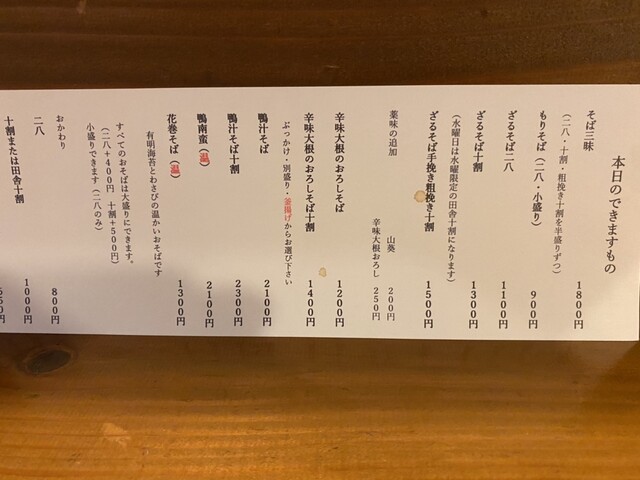 本日のできますもの
そば三昧 1800円
（二八・十割・粗挽き十割を半盛りずつ）
もりそば（二八・小盛り） 900円
ざるそば二八 1100円
ざるそば十割 1300円
（水曜日は水曜限定の田舎十割になります）
ざるそば手挽き粗挽き十割 1500円
薬味の追加 山葵 200円
辛味大根おろし 250円
辛味大根のおろしそば 1200円
辛味大根のおろしそば十割 1400円
ぶっかけ・別盛り・釜揚げからお選び下さい
鴨汁そば 2100円
鴨汁そば十割 2300円
鴨南蛮（温） 2100円
花巻そば（温） 1300円
有明海苔とわさびの温かいおそばです
すべてのおそばは大盛りにできます。
（二八＋400円 十割＋500円）
小盛りできます（二八のみ）
おかわり
二八 800円
十割または田舎十割 1000円